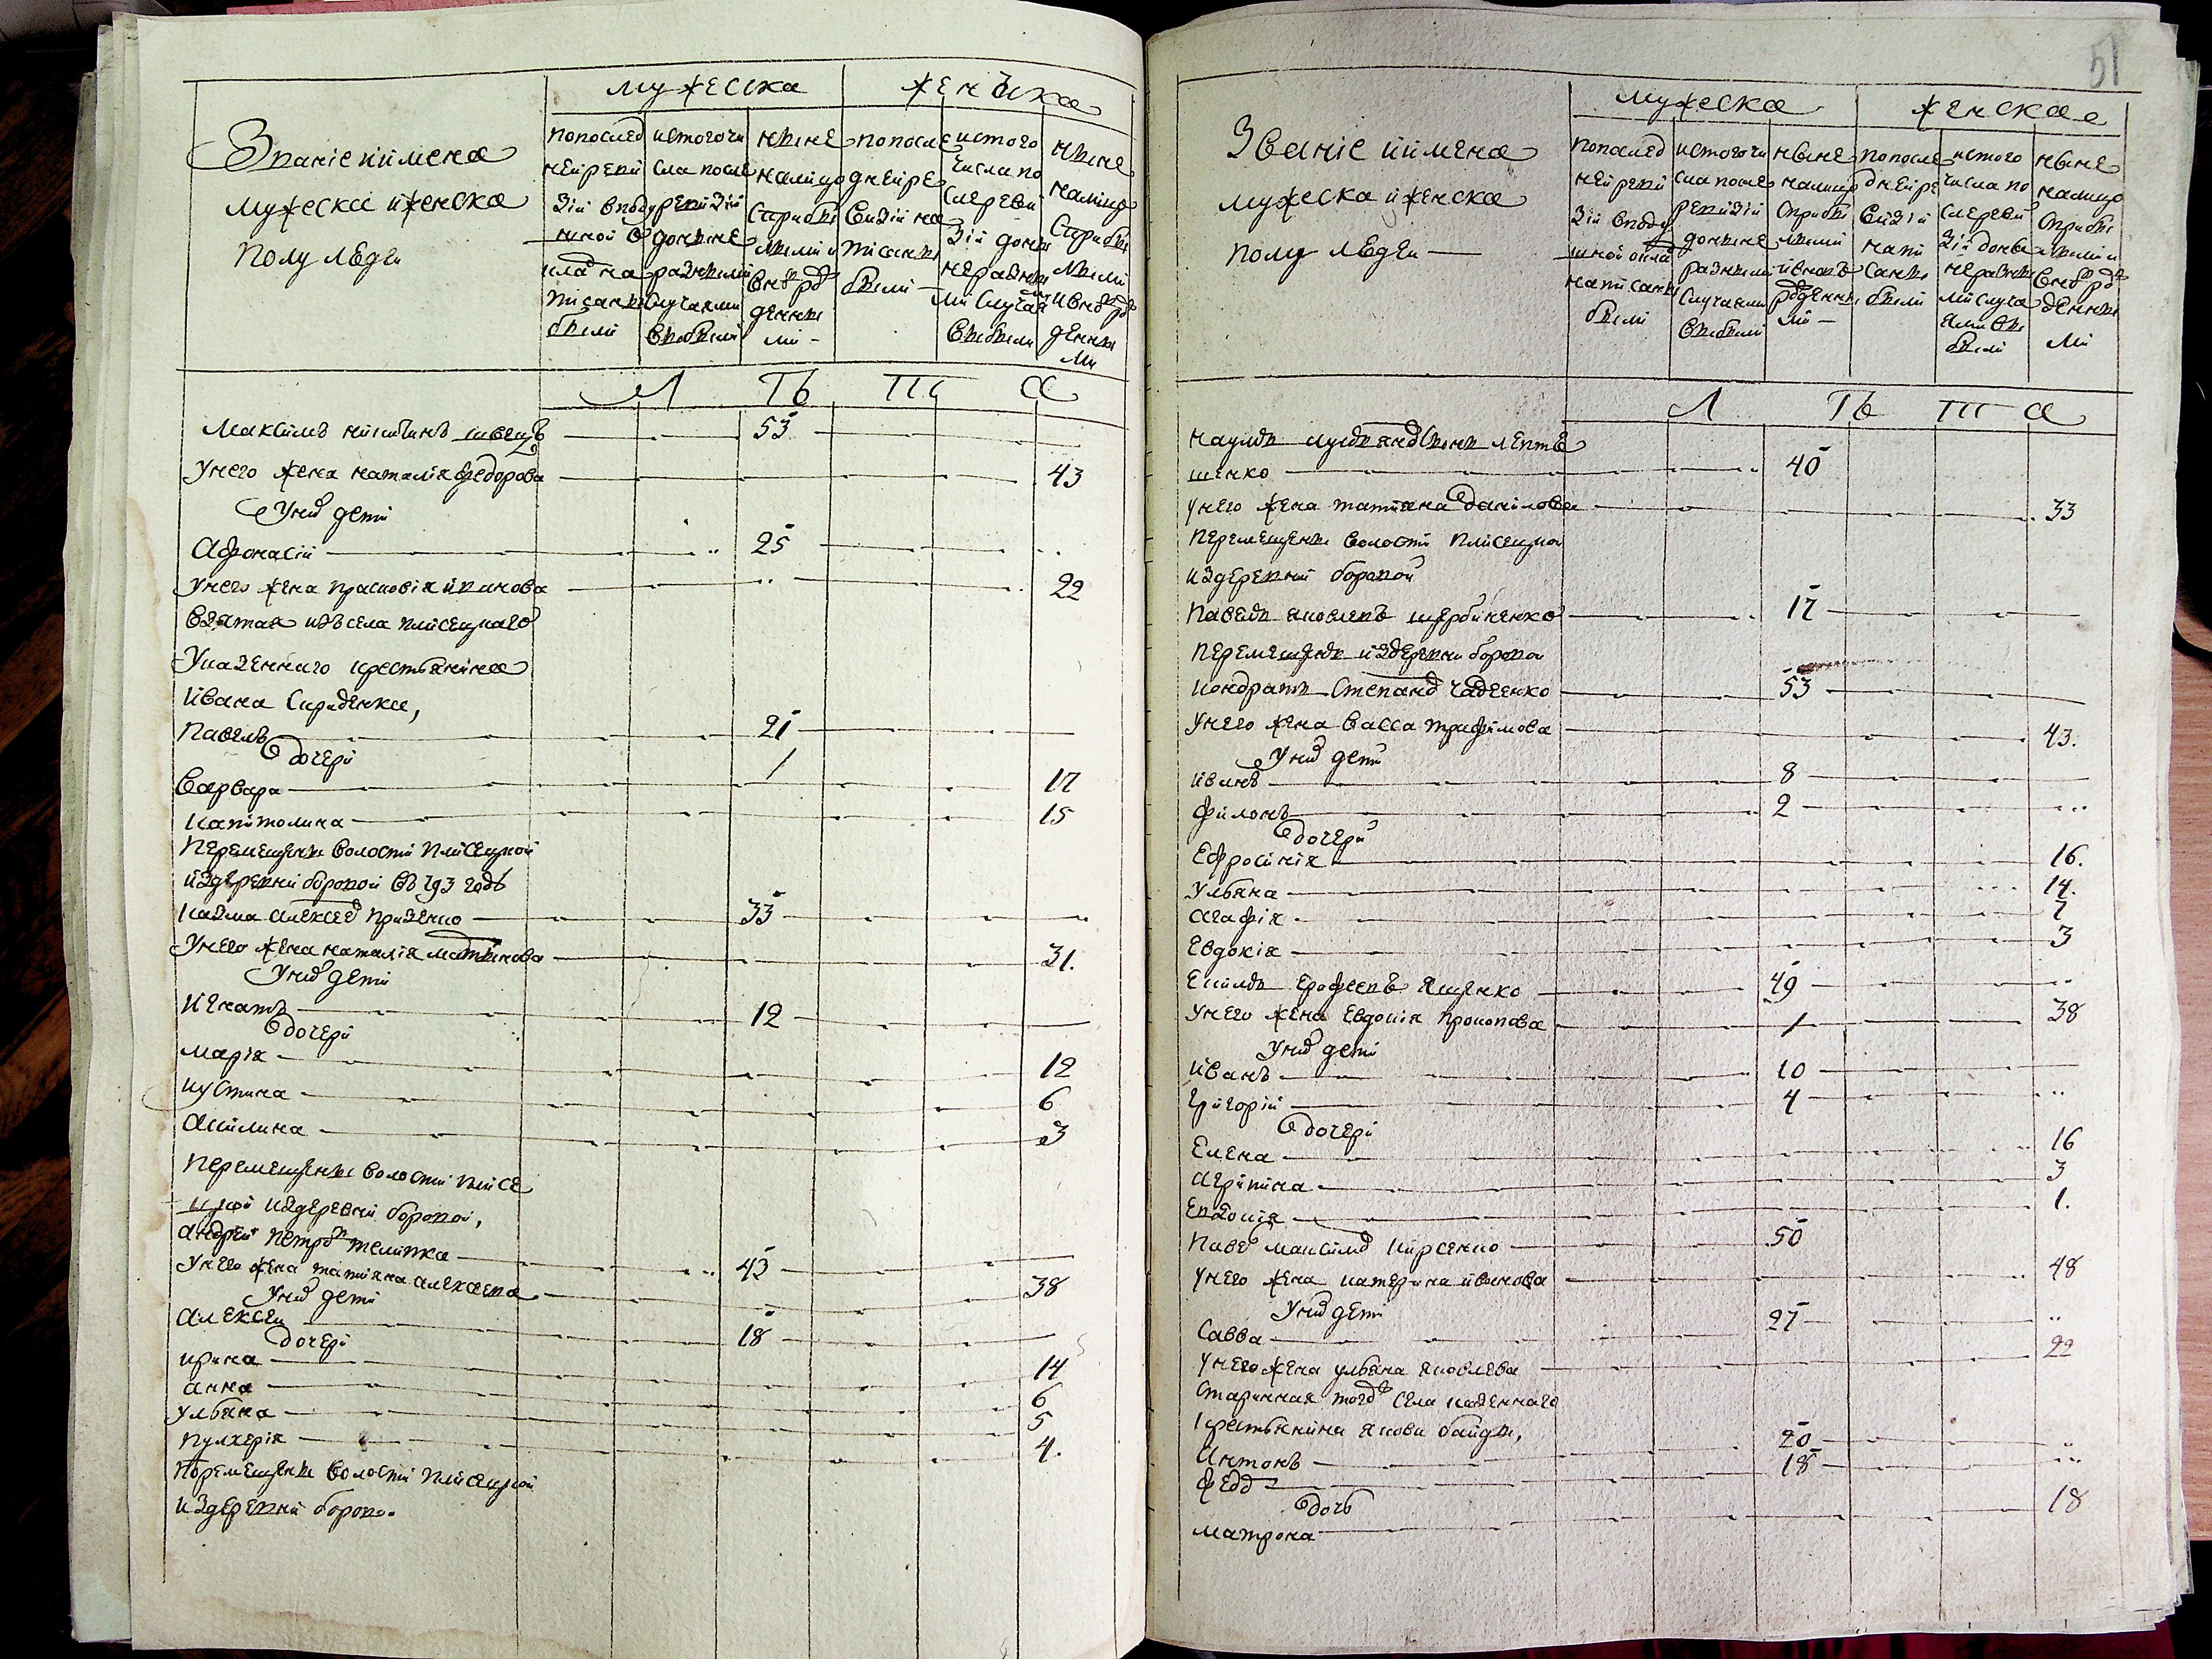 Званіе и имена
мужеска и женска
полу людеи
мужеска
женъска
попослед
ней реви
зіи в поду
шной о
кладна
писаны
были
истогочи
сла после
ревизіи
до ныне
разными
случаями
выбыли
ныне
налицо
сприбы
лыми и
вновь ро
жденны
ми -
попосле
дней ре
визіи на
писаны
были
истого
числа по
сле реви
зіи до ны
не разны
ми случая
выбыли
ныне
налицо
сприбы
лыми
и вновь ро
жденны
ми
Л Ть Та
Максимъ никитинъ швецъ 53
у него жена наталія федорова 43
у них дети
Афонасіи 25
у него жена прасковія иванова 22
взятая изъ села плисецкаго
у казенного крестьянина
ивана Спиденка,
Павелъ 21
дочери
Варвара 17
капитолина 15
перемещены волости плисецкой
из деревни боровой въ 793 годе
казма алексеев 33
у него жена наталія мартинова 31.
у них дети
Игнатъ 12
дочери
марія 12
иустина 6
акилина 3
перемещены волости плисе
цкой из деревни боровой,
андреи петров телипка 43
у него жена татияна алексеева 38
у них дети
алексеи 18
дочери
ирина 14
анна 6
ульяна 5
пулхерія 4.
перемещены волости плисецкой
из деревни борово.
51
Званіе и имена
мужеска и женска
полу людеи
мужеска
женская
попослед
ней реви
зіи в поду
шной окла
написаны
были
истогочи
сла после
ревизіи
до ныне
разными
случаями
выбыли
ныне
налицо
сприбы
лыми
и вновь
рожденны
ми -
попосле
дней ре
визіи
напи
саны
были
истого
числа по
сле реви
зіи до ны
не разны
ми случа
ями вы
были
ныне
налицо
сприбы
лыми и
вновь ро
жденны
ми
Л Ть Т а
наумъ
шенко 40
у него жена татияна данилова 33
перемещены волости плисецкой
из деревни боровой
Павелъ яковлевъ щербиненко 17
перемещенъ из деревни борова
кондратъ степанов 53
у него жена васса трифимова 43.
у них дети
иванъ 8
филонъ 2
дочери
Ефросинія 16.
ульяна 14.
агафія 7
Евдокія 3
Екимъ ерофеевъ ященко 49
у него жена евдокія прокопова 38
у них дети
иванъ 10
григорій 4
дочери
Елена 16
агрипина 3
Евдокія 1.
Паве максимов кирсенко 50
у него жена катерина иванова 48
у них дети
савва 27
у него жена ульяна яковлева 22
старинная того села казенного
крестьянина якова байды,
антонъ 20
федо 18
дочь
матрона 18